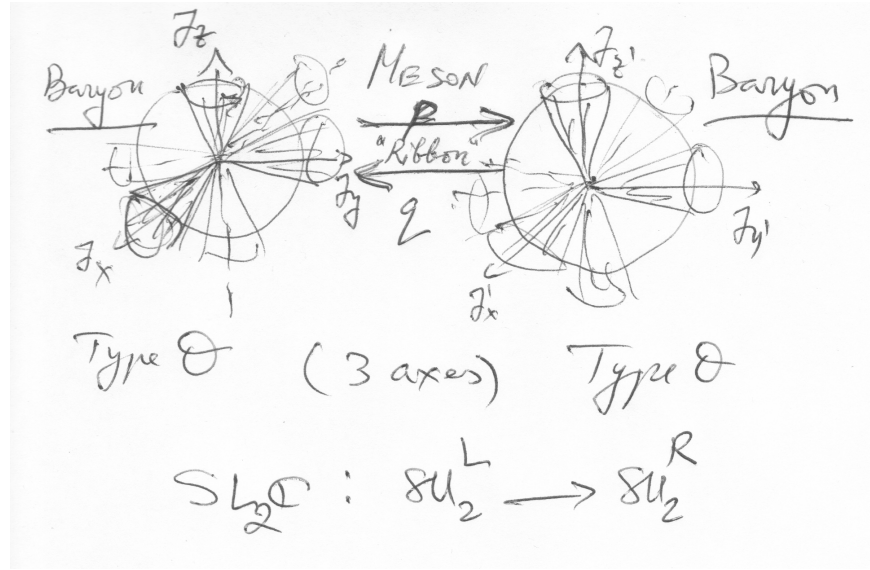 Jz
Baryon
MESON
Jz'
Baryon
p
"Ribbon"
q
Jy
Jx
Jy'
J'x
Type O (3 axes) Type O
SL₂ℂ : SU₂ᴸ ⟶ SU₂ᴿ